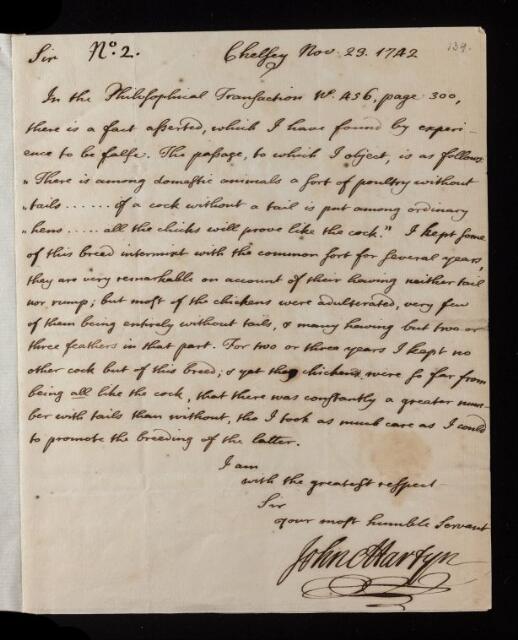 Sir No. 2. Chelsey Nov. 23. 1742 139.
In the Philosophical Transaction No. 456, page 300,
there is a fact asserted, which I have found by experi-
ence to be false. The passage, to which I object, is as follows
"There is among domestic animals a sort of poultry without
"tails ...... if a cock without a tail is put among ordinary
"hens ..... all the chicks will prove like the cock." I kept some
of this breed intermixt with the common sort for several years,
they are very remarkable on account of their having neither tail
nor rump; but most of the chickens were adulterated, very few
of them being entirely without tails, & many having but two or
three feathers in that part. For two or three years I kept no
other cock but of this breed; & yet the chickens were so far from
being all like the cock, that there was constantly a greater num-
ber with tails than without, tho I took as much care as I could
to promote the breeding of the latter.
I am
with the greatest respect
Sir
your most humble Servant
John Martyn